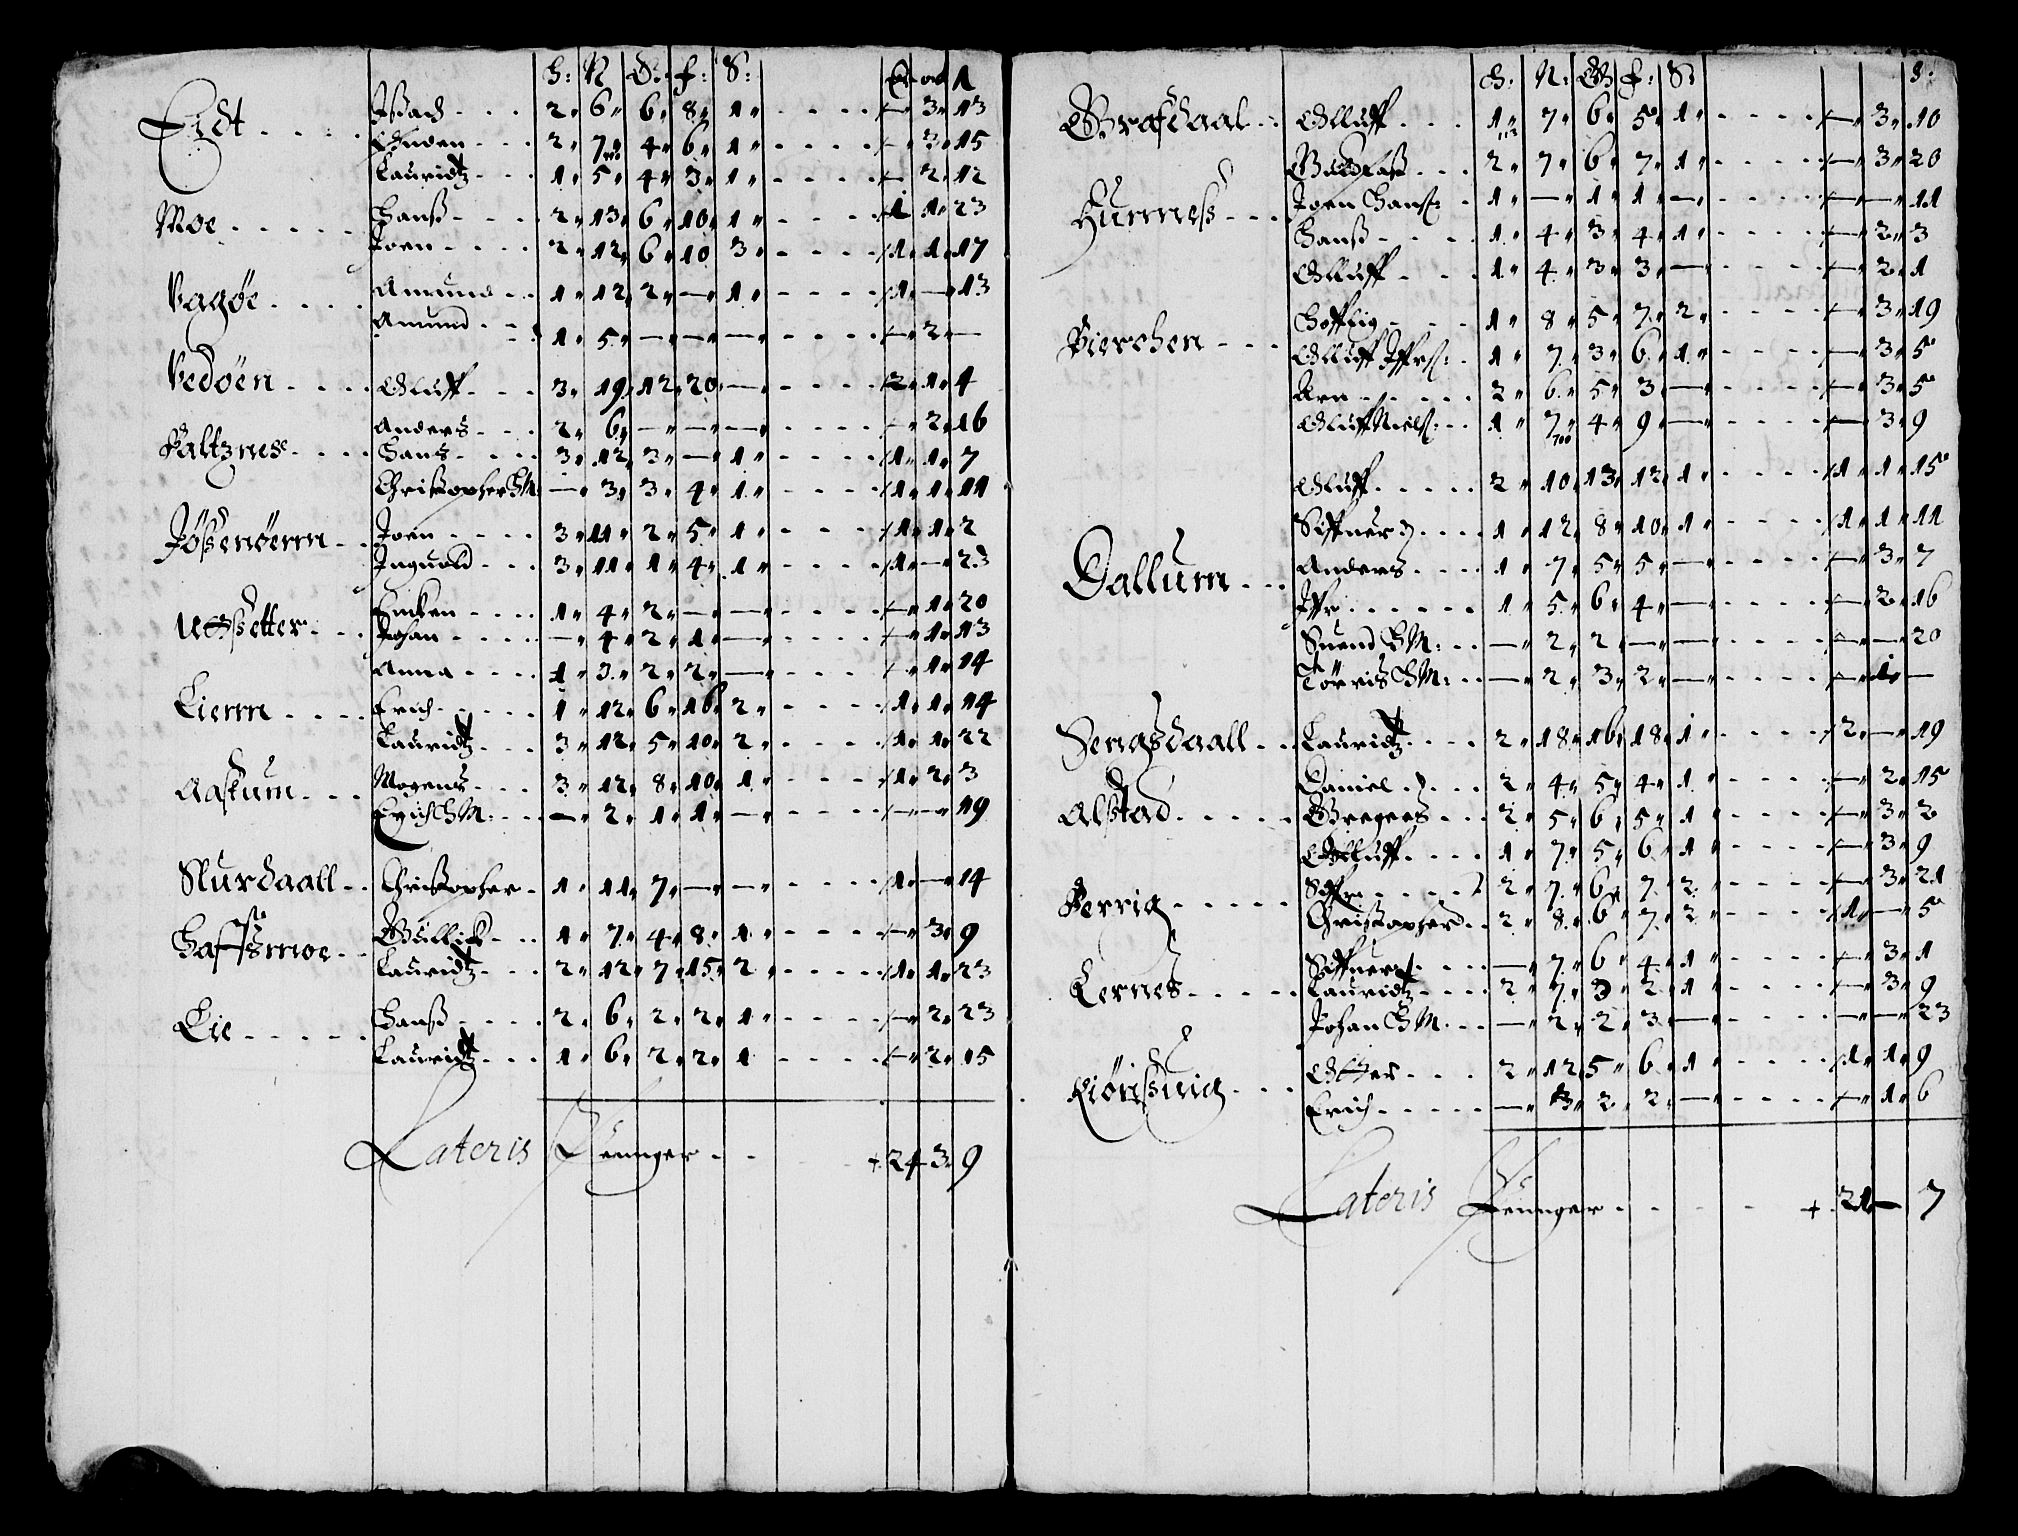 H: N G: f: S: 1
Eidt . . . . Isach . . . 2 6 6 8 1 - - - - — 3 13
Gunden . . . 2 7 4 6 1 - - - - — 3 15
Lauridtz . . . 1 5 4 3 1 - - - - — 2 12
Moe . . . . . Hanß . . . . 2 13 6 10 1 - - - - 1 1 23
Joen . . . . 2 12 6 10 3 - - - - 1 1 17
Vagøe . . . . Amund . . 1 12 2 — 1 - - - - 1 — 13
Amund . . 1 5 — — — - - - - — 2 —
Vedøen . . . . Olluff . . . 3 19 12 20 — - - - - 2 1 4
Paltznese . . . . Anders . . . 2 6 — — — - - - - — 2 16
Hans . . . . 3 12 3 — 1 - - - - 1 1 7
Christopher HM: — 3 3 4 1 - - - - 1 1 11
Jößenøernn . . Joen . . . . 3 11 2 5 1 - - - - 1 1 2
Inguold . . . 3 11 1 4 1 - - - - 1 — 23
1 4 2 — — - - - - — 1 20
Johan . . . . — 4 2 1 — - - - - — 1 13
Anna . . . . 1 3 2 2 — - - - - — 1 14
Lierrn . . . . Erich . . . . 1 12 6 16 2 - - - - 1 1 14
Lauridtz . . . 3 12 5 10 2 - - - - 1 1 22
Aaskum . . . Mogens . . . 3 12 8 10 1 - - - - 1 2 3
Erich HM: . . . — 2 1 1 — - - - - — — 19
Slurdaall . . Christopher . 1 11 7 — — - - - - 1 — 14
Haffsmoe . . Gullick . . . 1 7 4 8 1 - - - - — 3 9
Lauridtz . . . 2 12 7 15 2 - - - - 1 1 23
Lie . . . . . Hanß . . . . 2 6 2 2 1 - - - - — 2 23
Lauridtz . . . 1 6 2 2 1 - - - - — 2 15
Lateris Penninger . . . . 24 3 9
H: N: G f: S: S:
Grafdaal . . Olluff . . . 1 7 6 5 1 - - - - — 3 10
2 7 6 7 1 - - - - — 3 20
Hummeß . . . Joen Hanß: . 1 — 1 1 — - - - - — — 11
Hanß . . . . 1 4 3 4 1 - - - - — 2 3
Olluff . . . 1 4 3 3 — - - - - — 2 1
Bierchen . . . 1 8 5 7 2 - - - - — 3 19
Olluff 1 7 3 6 1 - - - - — 3 5
Arn . . . . . 2 6 5 3 — - - - - — 3 5
Olluff Nielß: . . 1 7 4 9 — - - - - — 3 9
Olluff . . . . . 2 10 13 12 1 - - - - 1 1 15
Dallum . . . 1 12 8 10 1 - - - - 1 1 11
Anders . . . . 1 7 5 5 — - - - - — 3 7
1 5 6 4 — - - - - — 2 16
Suend HM: . . — 2 2 — — - - - - — — 20
Törris HM: . . — 2 3 2 — - - - - — 1 —
Sengsdaall . . Lauridtz . . . . 2 18 16 18 1 - - - - 2 — 19
Alstad . . . . . Daniel . . . 2 4 5 4 1 - - - - — 2 15
Gregers . . . 2 5 6 5 1 - - - - — 3 2
Olluff . . . . 1 7 5 6 1 - - - - — 3 9
Berrig . . . . . 2 7 6 7 2 - - - - — 3 21
Christopher . . 2 8 6 7 2 - - - - 1 — 5
Lernes . . . . . — 7 6 4 1 - - - - — 3 1
Lauridtz . . . . 2 7 3 2 1 - - - - — 3 9
Johan HM . . . — 2 2 3 — - - - - — — 23
Kiörßuig . . . 2 12 5 6 1 - - - - 1 1 9
Erich . . . . . — 3 2 2 — - - - - — 1 6
Lateris Penninger . . . . 21 — 7